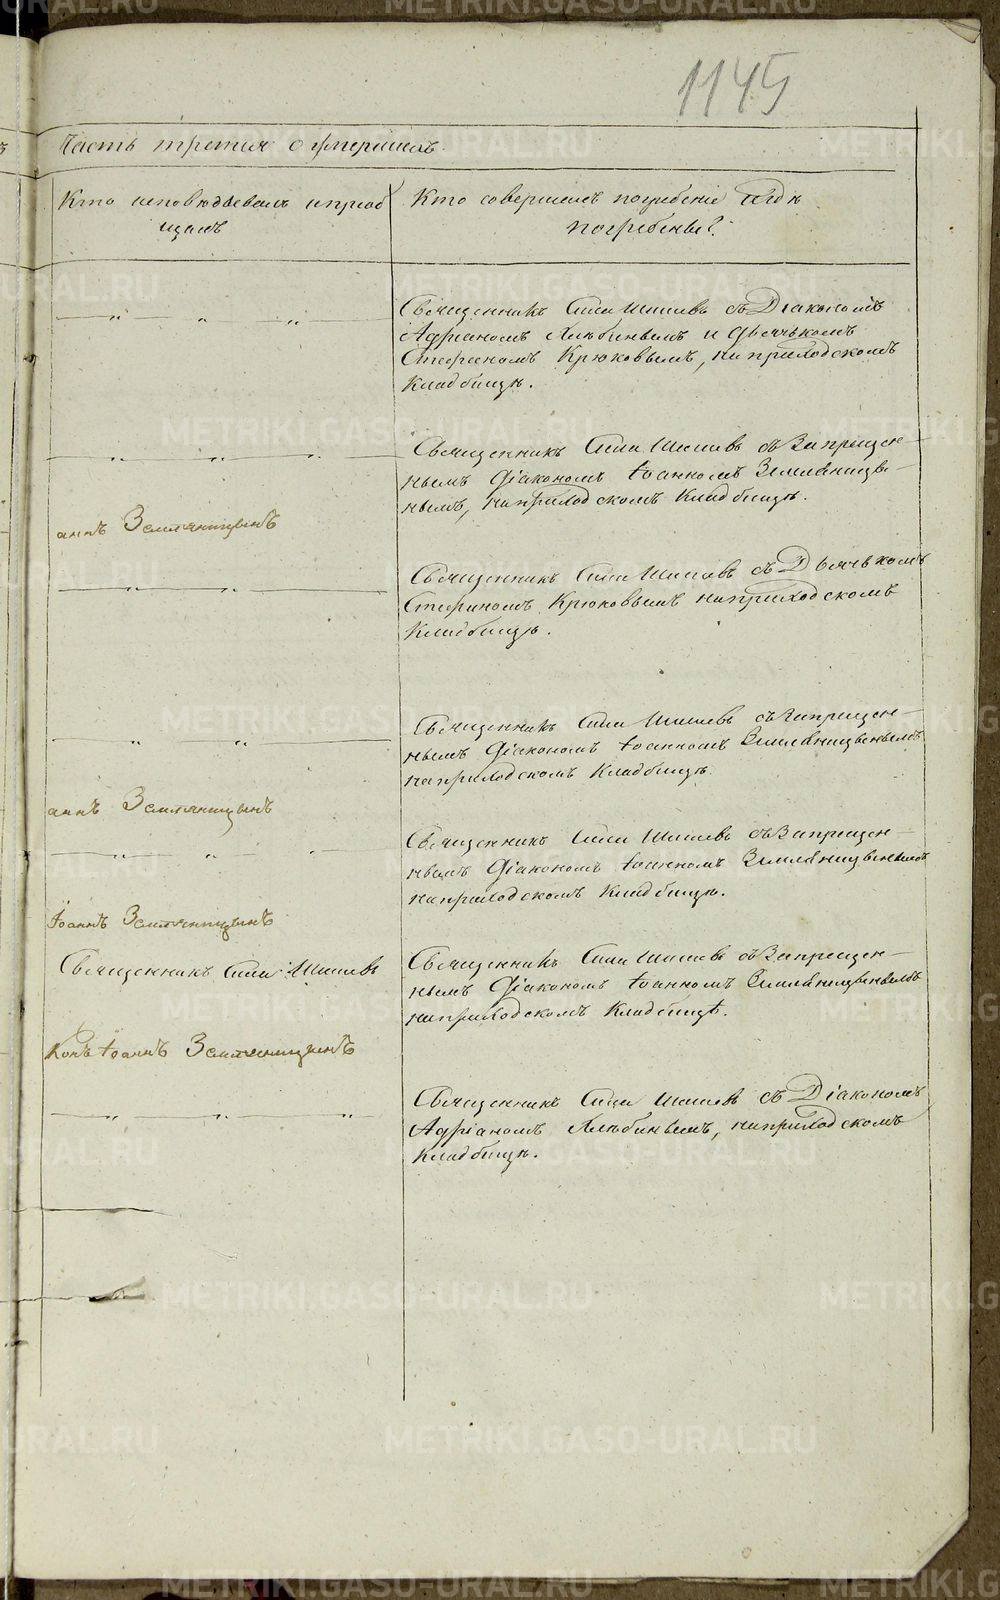 1145
Часть третья о умершихъ.
Кто исповѣдывалъ и приоб
щалъ
Кто совершалъ погребеніе и гдѣ
погребены?
Священникъ Сила Шишевъ съ Діакономъ
Адріаномъ Хлѣбинымъ и дьячькомъ
Стефаномъ Крюковымъ, на приходскомъ
Кладбищѣ.
Священникъ Сила Шишевъ съ Запрещен-
нымъ Діакономъ Іоанномъ Земляницы-
нымъ, на приходскомъ Кладбищѣ.
аннъ Земляницынъ
Священникъ Сила Шишевъ съ Дьячькомъ
Стефаномъ Крюковымъ на приходскомъ
Кладбищѣ.
Священникъ Сила Шишевъ съ Запрещен-
нымъ Діакономъ Іоанномъ Земляницынымъ
на приходскомъ Кладбищѣ.
аннъ Земляницынъ
Священникъ Сила Шишевъ съ Запрещен-
нымъ Діакономъ Іоанномъ Земляницынымъ
на приходскомъ Кладбищѣ.
Іоаннъ Земляницынъ
Священникъ Сила Шишевъ
Священникъ Сила Шишевъ съ Запрещен-
нымъ Діакономъ Іоанномъ Земляницынымъ
на приходскомъ Кладбищѣ.
конъ Іоаннъ Земляницынъ
Священникъ Сила Шишевъ съ Діакономъ
Адріаномъ Хлѣбинымъ, на приходскомъ
Кладбищѣ.
METRIKI.GASO-URAL.RU